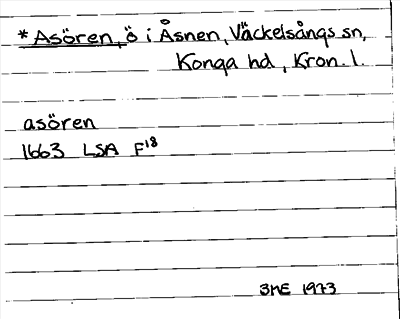 *Asören, ö i Åsnen, Väckelsångs sn,
Konga hd, Kron. l.
asören
1663 LSA F18
BME 1973